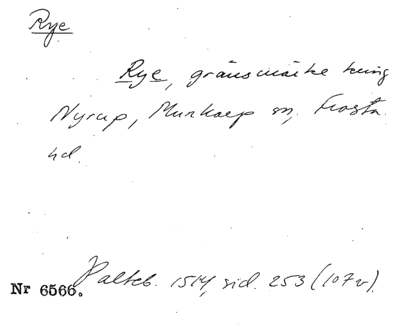 Rye
Rye, gränsmärke kring
Nyrup, Munkarp sn, Frosta
hd.
Palteb. 1514, sid. 253 (107v).
Nr 6566.